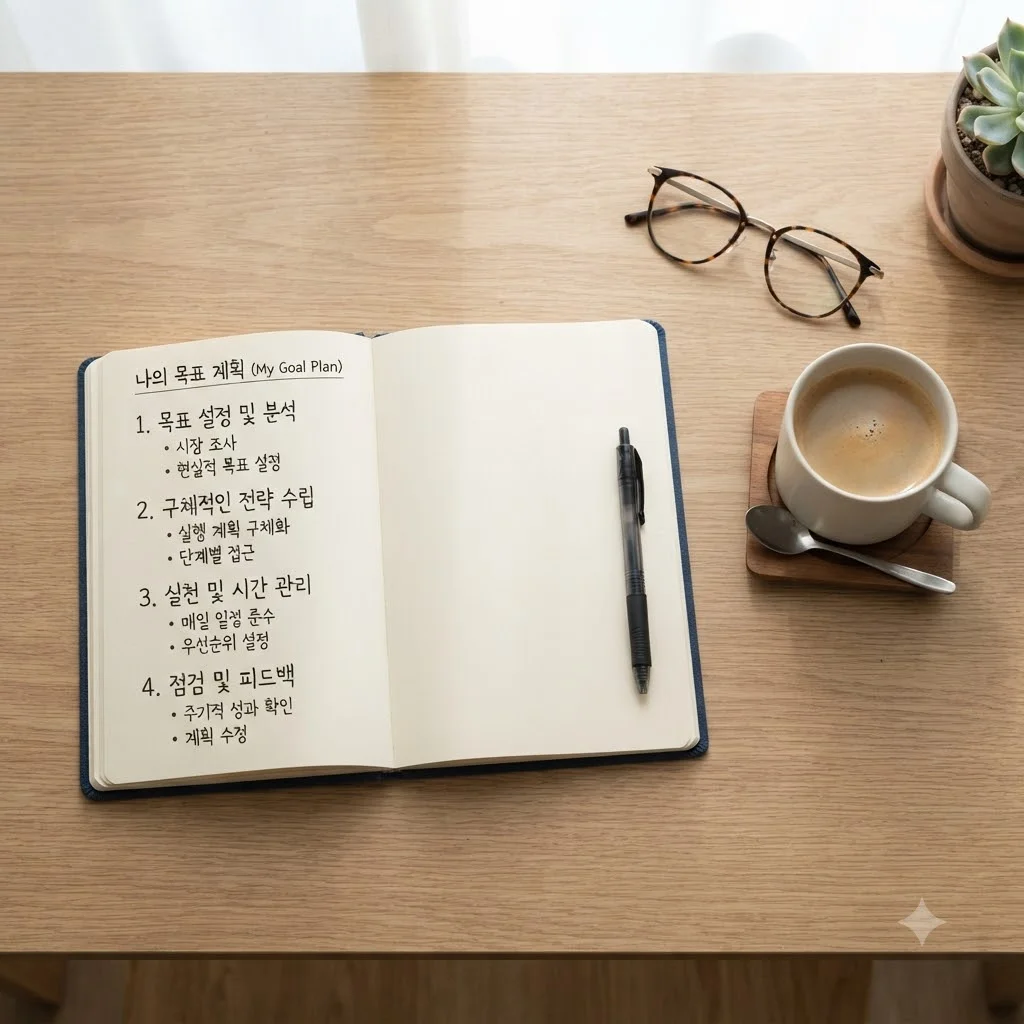 나의 목표 계획 (My Goal Plan)
1. 목표 설정 및 분석
• 시장 조사
• 현실적 목표 설정
2. 구체적인 전략 수립
• 실행 계획 구체화
• 단계별 접근
3. 실천 및 시간 관리
• 매일 일정 준수
• 우선순위 설정
4. 점검 및 피드백
• 주기적 성과 확인
• 계획 수정